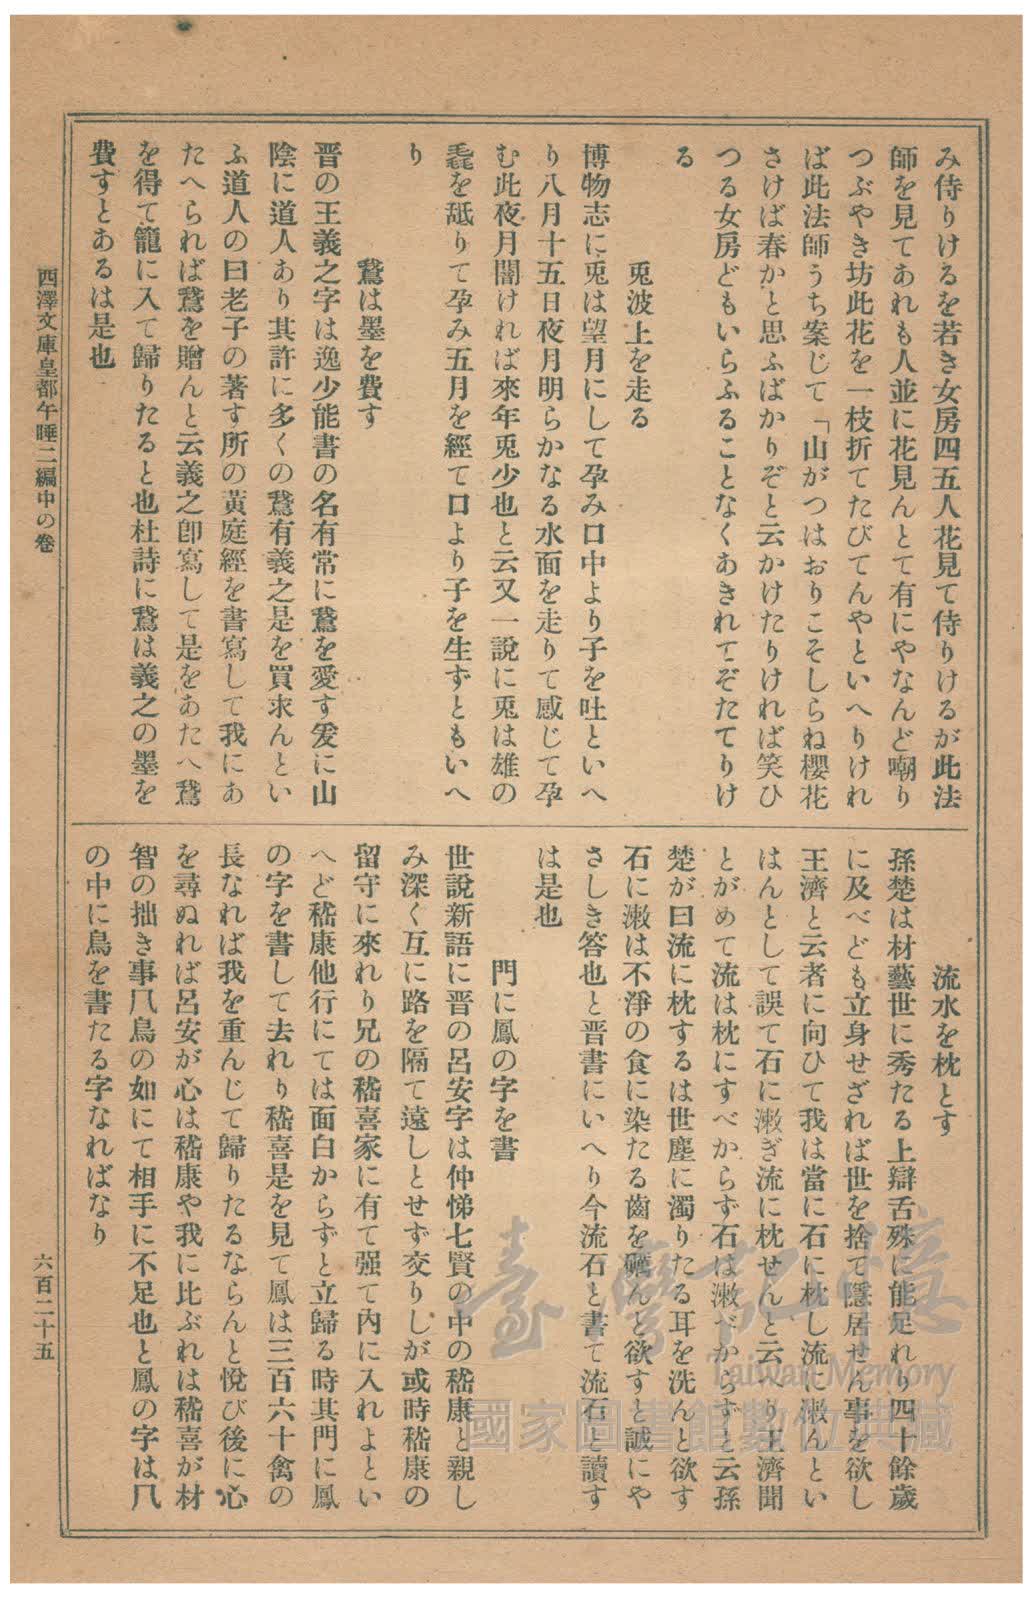 み侍りけるを若き女房四五人花見て侍りけるが此法
師を見てあれも人並に花見んとて有にやなんど嘲り
つぶやき坊此花を一枝折てたびてんやといへりけれ
ば此法師うち案じて「山がつはおりこそしらね櫻花
さけば春かと思ふばかりぞと云かけたりければ笑ひ
つる女房どもいらふることなくあきれてぞたてりけ
る
兎波上を走る
博物志に兎は望月にして孕み口中より子を吐といへ
り八月十五日夜月明らかなる水面を走りて感じて孕
む此夜月闇ければ來年兎少也と云又一說に兎は雄の
毳を舐りて孕み五月を經て口より子を生ずともいへ
り
鵞は墨を費す
晋の王義之字は逸少能書の名有常に鵞を愛す爰に山
陰に道人あり其許に多くの鵞有義之是を買求んとい
ふ道人の曰老子の著す所の黃庭經を書寫して我にあ
たへられば鵞を贈んと云義之卽寫して是をあたへ鵞
を得て籠に入て歸りたると也杜詩に鵞は義之の墨を
費すとあるは是也
流水を枕とす
孫楚は材藝世に秀たる上辯舌殊に能足れり四十餘歲
に及べども立身せざれば世を捨て隱居せん事を欲し
王濟と云者に向ひて我は當に石に枕し流に漱んとい
はんとして誤て石に漱ぎ流に枕せんと云へり王濟聞
とがめて流は枕にすべからず石は漱べからずと云孫
楚が曰流に枕するは世塵に濁りたる耳を洗んと欲す
石に漱は不淨の食に染たる齒を礪んと欲すと誠にや
さしき答也と晋書にいへり今流石と書て流石と讀す
は是也
門に鳳の字を書
世說新語に晋の呂安字は仲悌七賢の中の嵇康と親し
み深く互に路を隔て遠しとせず交りしが或時嵇康の
留守に來れり兄の嵇喜家に有て强て內に入れよとい
へど嵇康他行にては面白からずと立歸る時其門に鳳
の字を書して去れり嵇喜是を見て鳳は三百六十禽の
長なれば我を重んじて歸りたるならんと悅び後に心
を尋ぬれば呂安が心は嵇康や我に比ぶれは嵇喜が材
智の拙き事凡鳥の如にて相手に不足也と鳳の字は凡
の中に鳥を書たる字なればなり
西澤文庫皇都午睡二編中の卷
六百二十五
臺灣記憶
Taiwan Memory
國家圖書館數位典藏